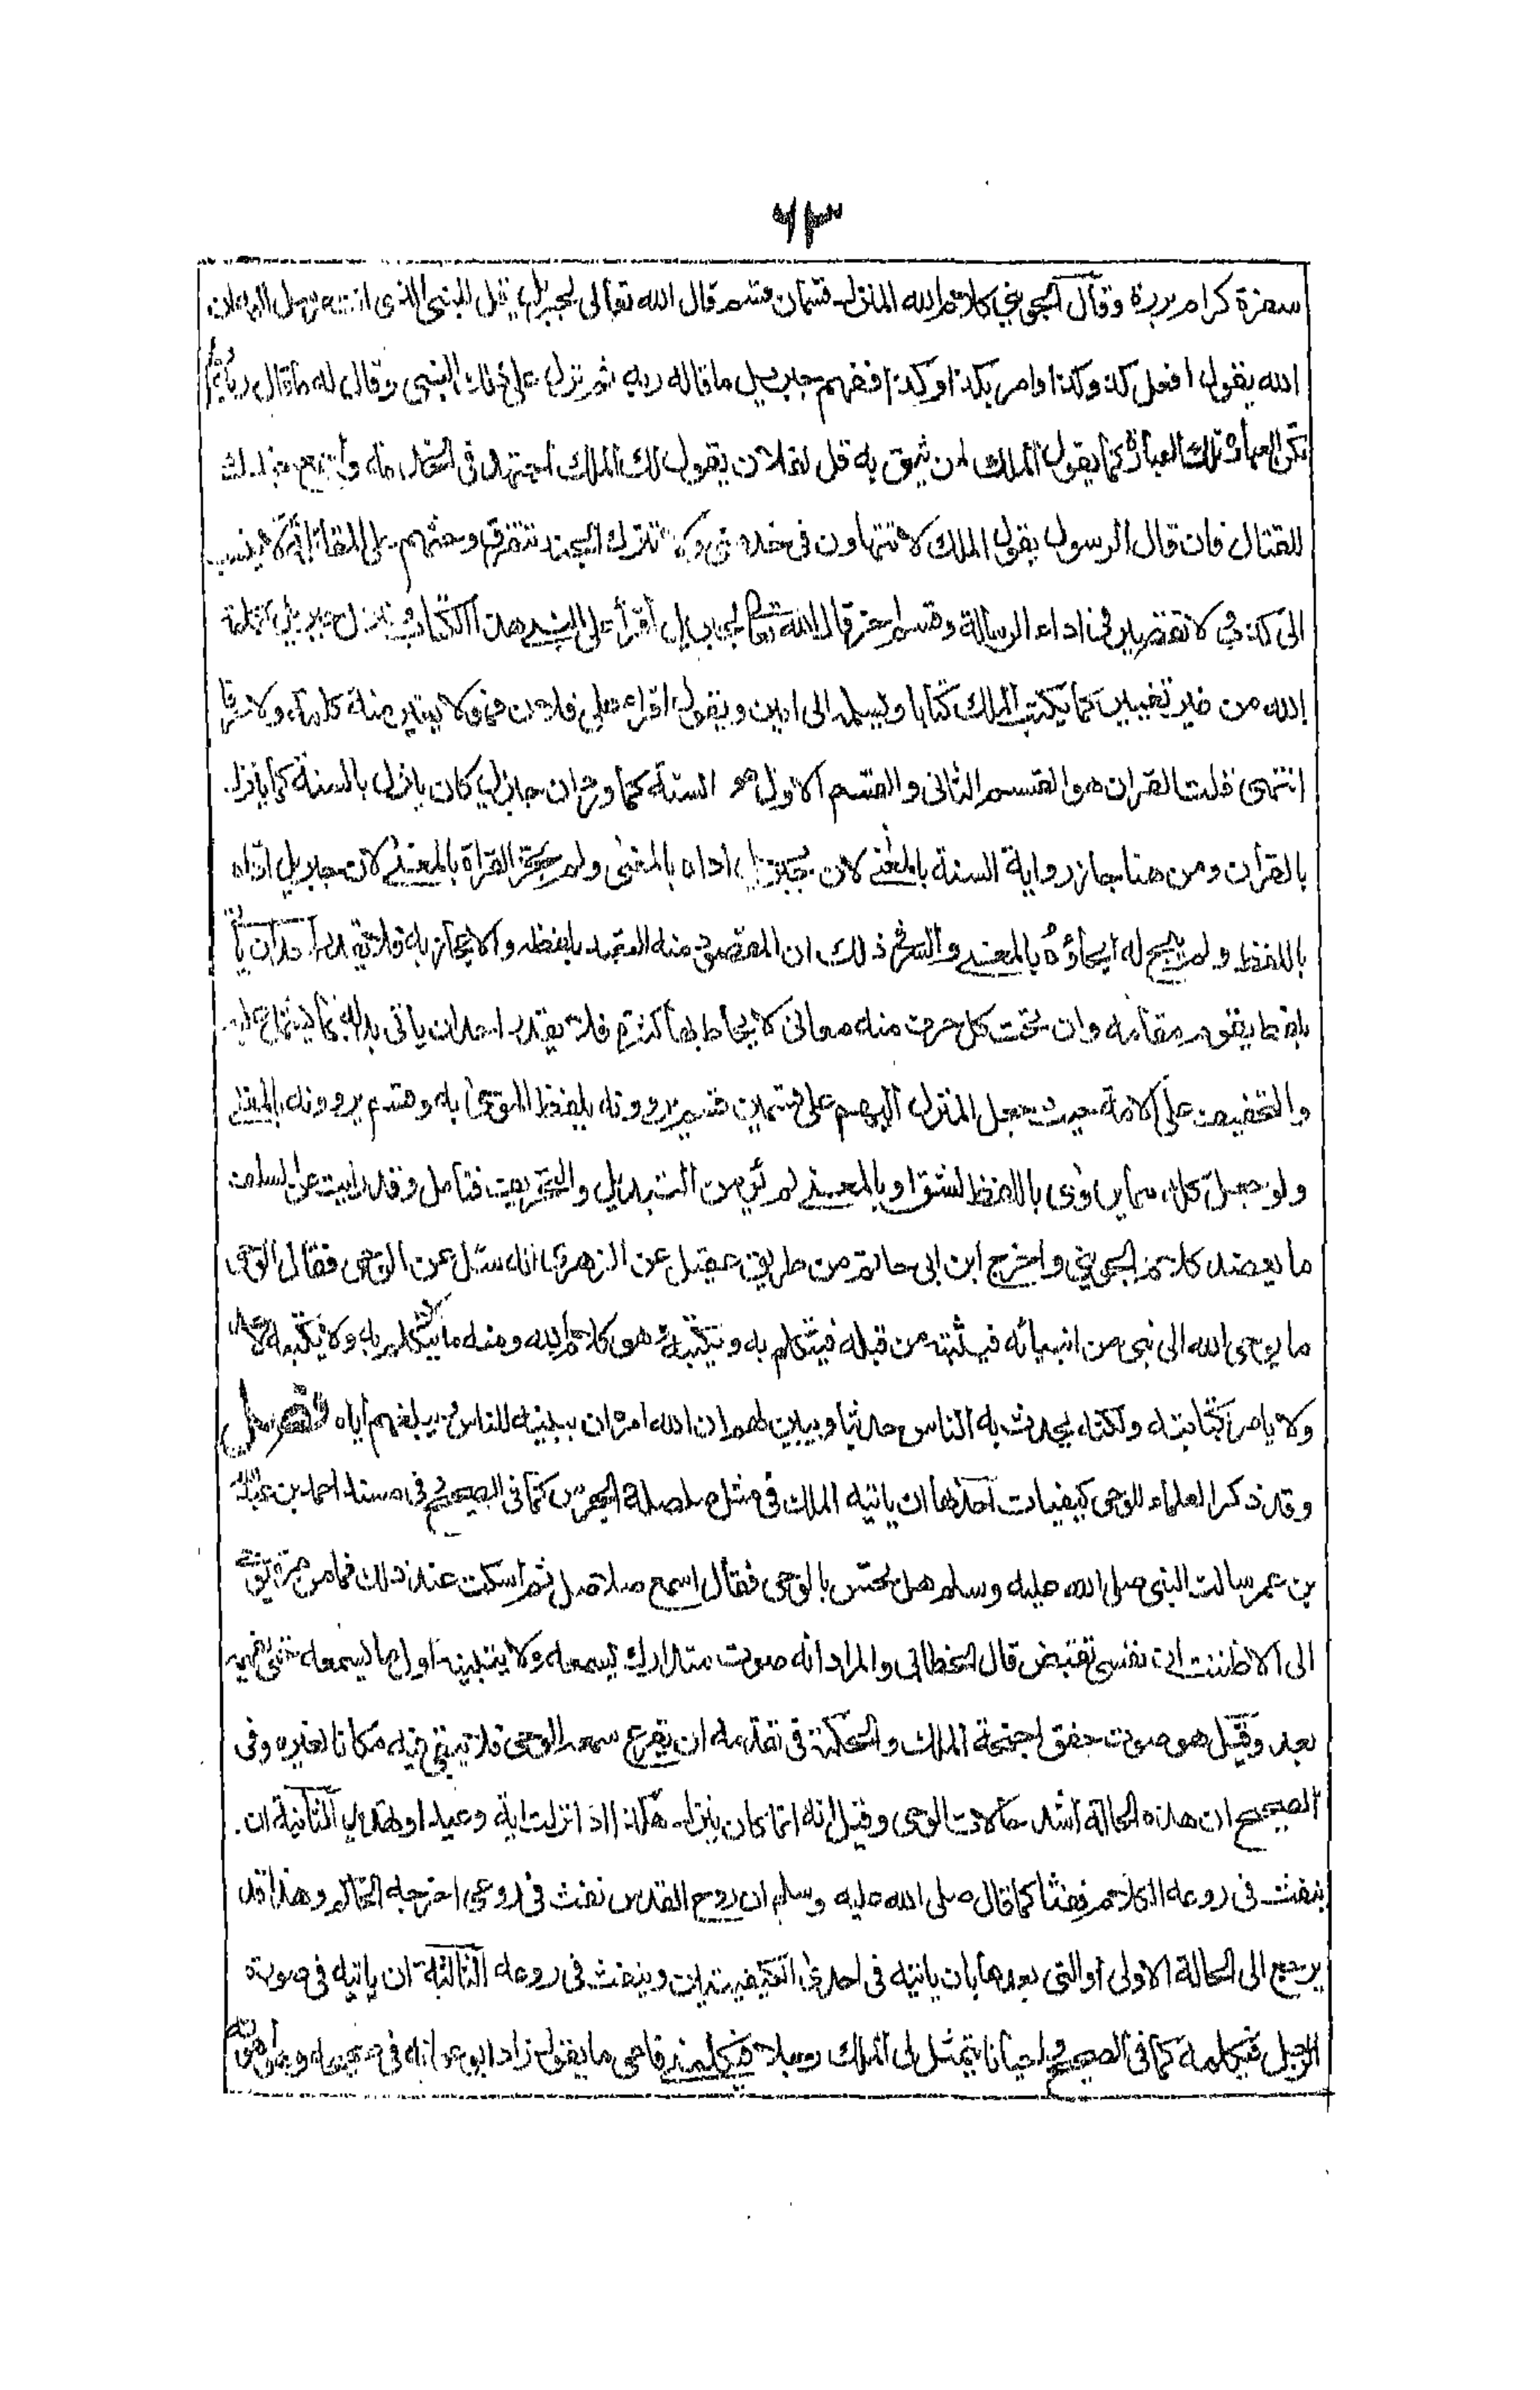 ٦٣
سفرة كرام بررة وقال الجويني كلام الله المنزل قسمان قسم قال الله تعالى لجبريل قل للنبي الذى انت مرسل اليه ان
الله يقول افعل كذا وكذا وامر بكذا وكذا ففهم جبريل ما قاله ربه ثم نزل على ذلك النبي وقال له ما قال ربه ولم
تكن العبارة تلك العبارة كما يقول الملك لمن يثق به قل لفلان يقول لك الملك اجتهد فى الخدمة واجمع جندك
للقتال فان قال الرسول يقول الملك لا تتهاون فى خدمتى ولا تترك الجند تتفرق وحثهم على المقاتلة لا ينسب
الى كذب ولا تقصير فى اداء الرسالة وقسم اخر قال الله تعالى لجبريل اقرأ على النبى هذا الكتاب فنزل جبريل بكلمة
الله من غير تغيير كما يكتب الملك كتابا ويسلمه الى امين ويقول اقراه على فلان فهو لا يغير منه كلمة ولا حرفا
انتهى قلت القران هو القسم الثانى والقسم الاول هو السنة كما ورد ان جبريل كان ينزل بالسنة كما ينزل
بالقرأن ومن هنا جاز رواية السنة بالمعنى لان جبريل اداه بالمعنى ولم تجز القراة بالمعنى لان جبريل اداه
باللفظ ولم يبح له ايحاؤه بالمعنى والسر فى ذلك ان المقصود منه التعبد بلفظه والاعجاز به فلا يقدر احد ان ياتى
بلفظ يقوم مقامه وان تحت كل حرف منه معانى لا يحاط بها كثرة فلا يقدر احد ان ياتى بدله بما يشتمل عليه
والتخفيف على الامة حيث جعل المنزل اليهم على قسمين قسم يروونه بلفظ الموحى به وقسم يروونه بالمعنى
ولو جعل كله مما يروى باللفظ لشق او بالمعنى لم يؤمن التبديل والتحريف فتامل وقد رايت عن السلف
ما يعضد كلام الجويني واخرج ابن ابى حاتم من طريق عقيل عن الزهرى انه سئل عن الوحى فقال الوحى
ما يوحى الله الى نبى من انبيائه فيثبته من قبله فيتكلم به ويكتبه وهو كلام الله ومنه ما لا يتكلم به ولا يكتبه لاحد
ولا يامر بكتابته ولكنه يحدث به الناس حديثا ويبين لهم ان الله امره ان يبينه للناس ويبلغهم اياه فصل
وقد ذكر العلماء للوحى كيفيات احدها ان ياتيه الملك فى مثل صلصلة الجرس كما فى الصحيح وفى مسند احمد عن عبد الله
بن عمر سالت النبى صلى الله عليه وسلم هل تحس بالوحى فقال اسمع صلاصل ثم اسكت عند ذلك فما من مرة يوحى
الى الا ظننت ان نفسى تقبض قال الخطابى والمراد انه صوت متدارك يسمعه ولا يتبينه اول ما يسمعه حتى يفهمه
بعد وقيل هو صوت خفق اجنحة الملك والحكمة فى تقدمه ان يقرع سمعه الوحى فلا يبقى فيه مكانا لغيره وفى
الصحيح ان هذه الحالة اشد حالات الوحى وقيل انه انما كان ينزل هكذا اذا نزلت اية وعيد او تهديد الثانية ان
ينفث فى روعه الكلام نفثا كما قال صلى الله عليه وسلم ان روح القدس نفث فى روعى اخرجه الحاكم وهذا قد
يرجع الى الحالة الاولى او التى بعدها بان ياتيه فى احدى الكيفيتين وينفث فى روعه الثالثة ان ياتيه فى صورة
الرجل فيكلمه كما فى الصحيح واحيانا يتمثل لى الملك رجلا فيكلمنى فاعى ما يقول زاد ابو عوانة فى صحيحه وهو اهونه